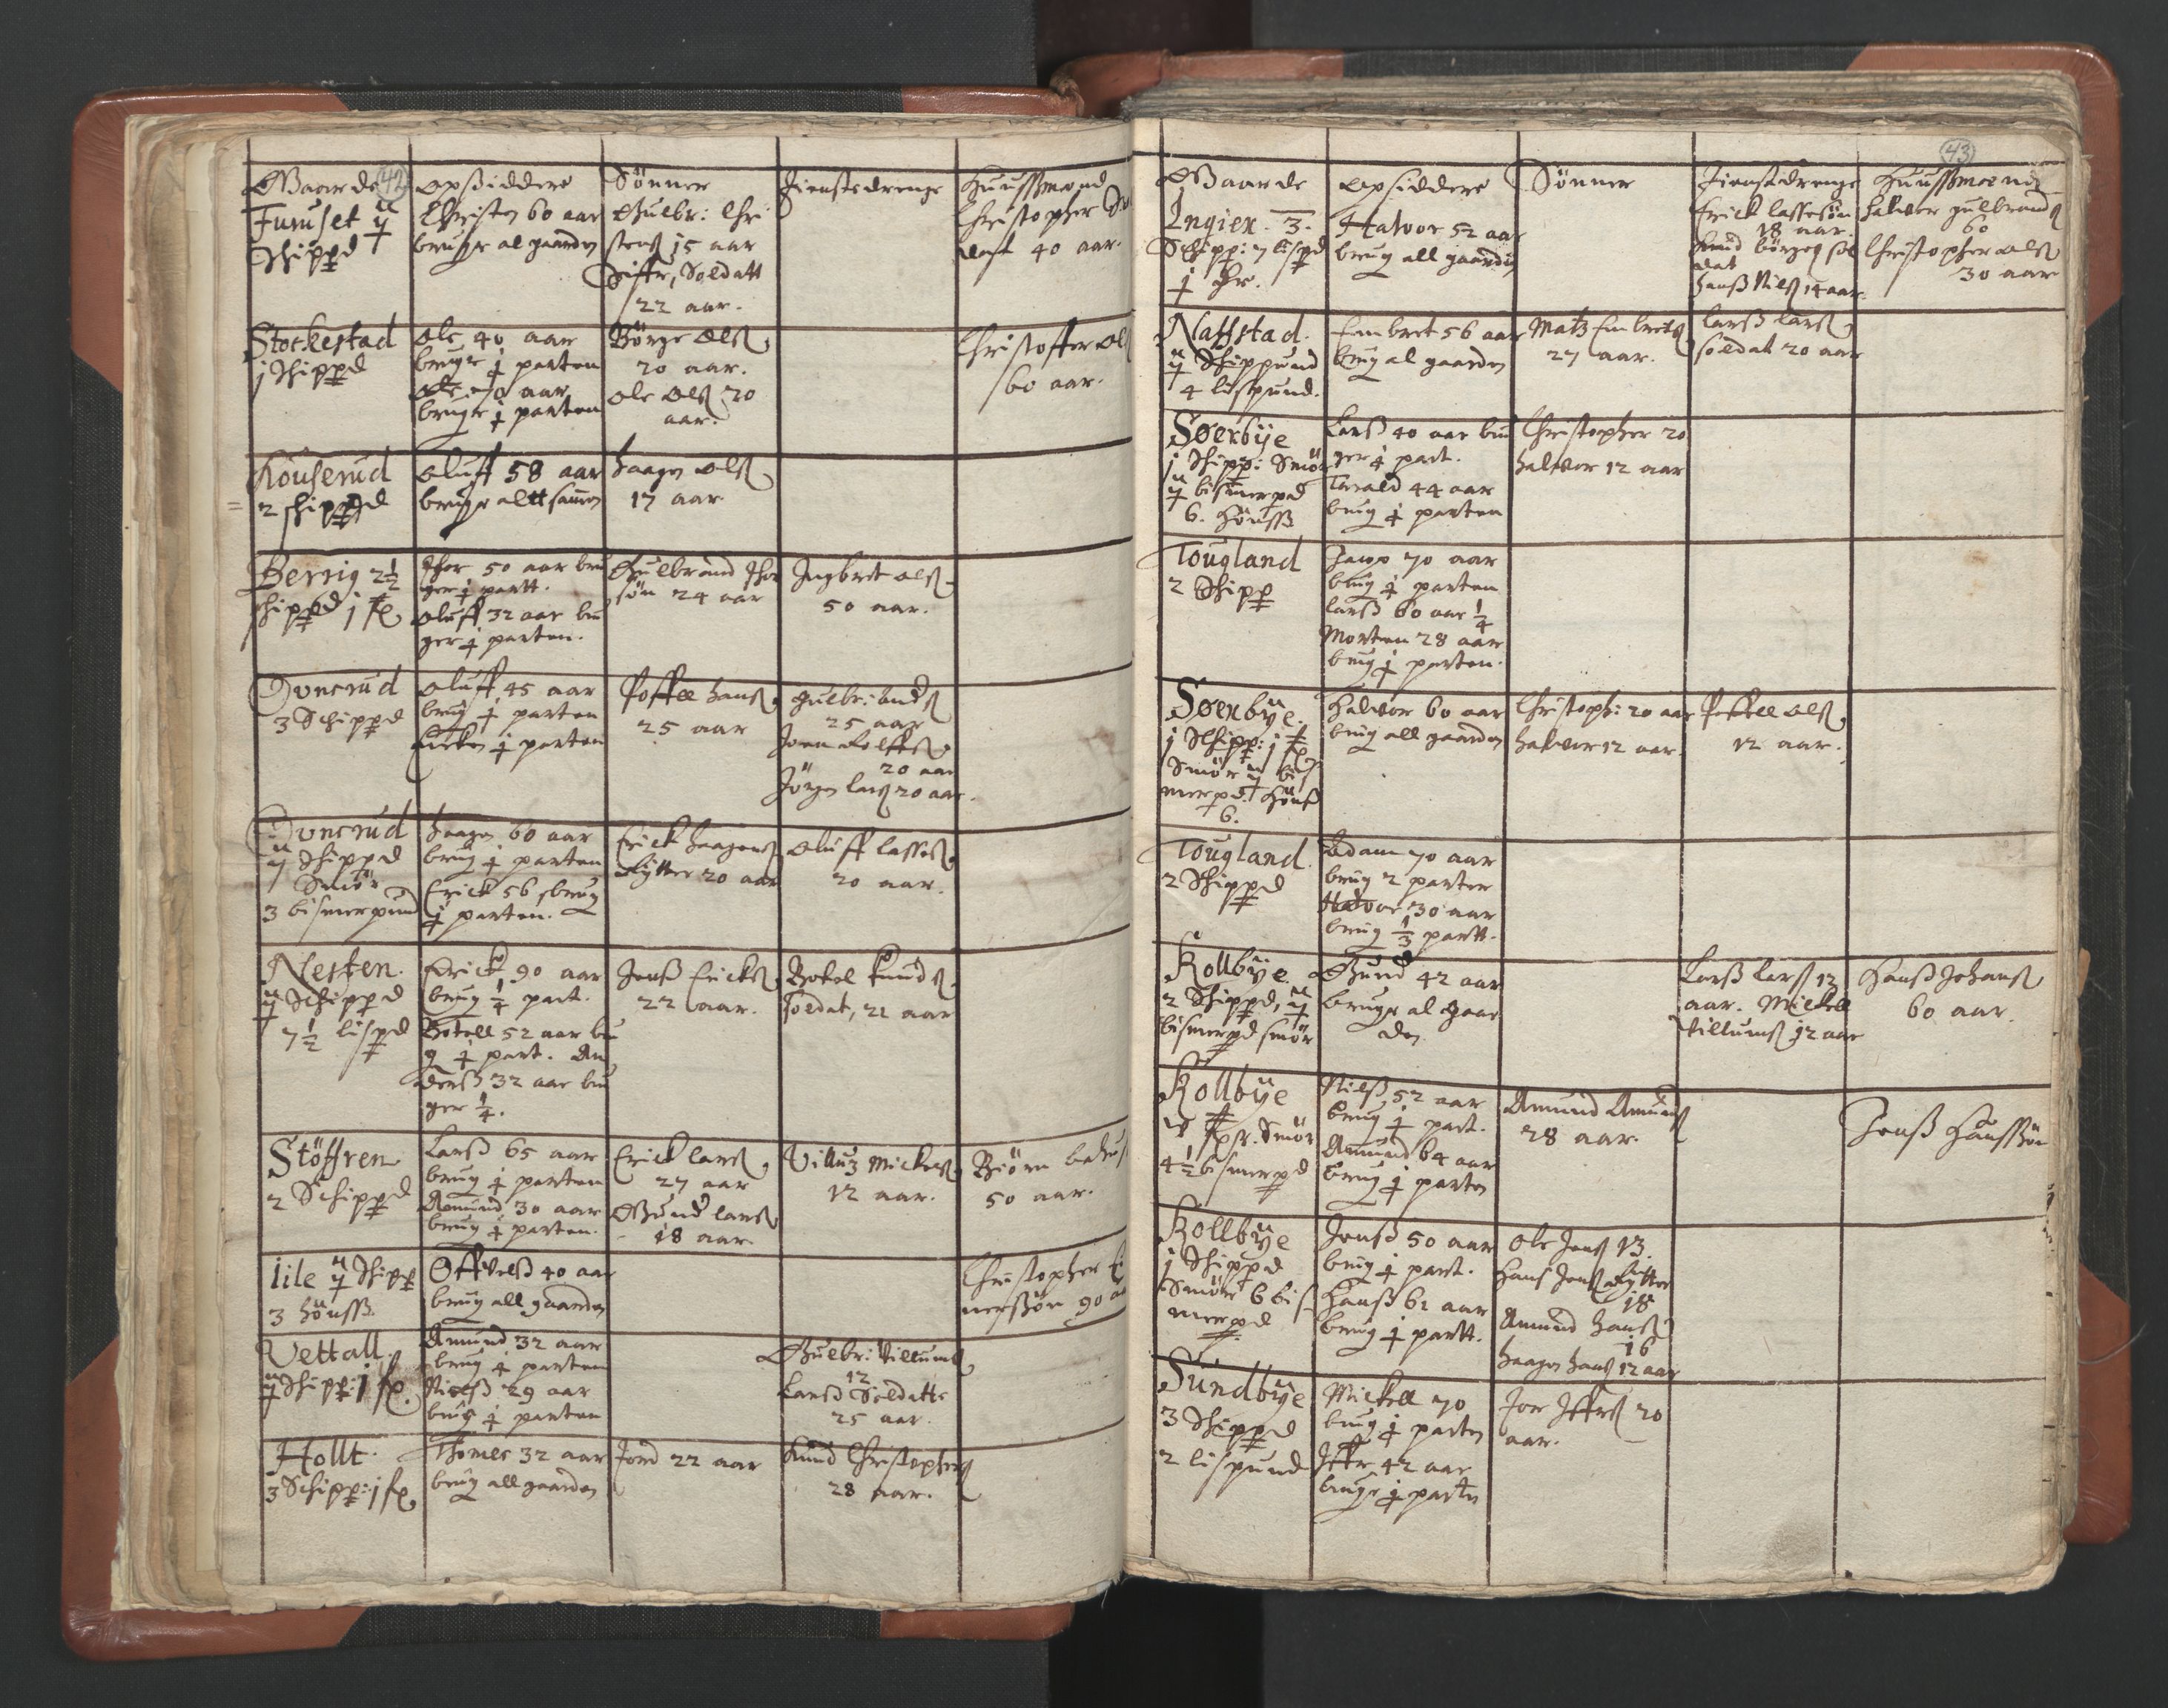 42
Gaarde
Opsiddere
Sönner
Tienstedrenge
Huussmænd
Furuset
Schippd
Christen 60 aar
bruger al gaarden
Gulbr: Chri
stens 15 aar
Siffr, Soldatt
22 aar.
Christopher
40 aar.
Stockestad
j Schippd
Ole 40 aar
bruger ½ parten
Ole 70 aar
bruger ½ parten
Börge Olß
20 aar.
Ole Olß 20
aar.
Christoffer Olß
60 aar.
Houserud
2 schippd
Oluff 58 aar
bruger altt samen
Haagen Olß
17 aar
Berrig 2½
schippd j
Thor 50 aar bru
ger ½ partt.
Oluff 32 aar bru
ger ½ parten.
Gulbrand Thor
sön 24 aar
Ingbret Olß
50 aar.
Duncrud
3 Schippd
Oluff 45 aar
brug ½ parten
½ parten
Poffel Hanß
25 aar
Gulbr:
25 aar
20 aar
Jörgen Larß 20 aar.
Duncrud
Schippd
Smör
3 bismerpund
Haagen 60 aar
brug ½ parten
Erick 56 brug
½ parten.
Erick Haagens
Rytter 20 aar
Oluff Lasseß
20 aar.
Nesten.
Schippd
7½ lispd
Erick 90 aar
brug ¼ part.
Botell 52 aar bru
g ½ part. An
derß 32 aar bru
ger ¼.
Jenß Erickß
22 aar.
Botel Knudß
soldat, 21 aar
Stöffren
2 Schippd
Larß 65 aar
brug ½ parten
Amund 30 aar
brug ½ parten.
Erick Larß
27 aar
Gund Larß
18 aar.
Villuz Mickelß
12 aar.
Biörn
50 aar.
Lile Schipp
3 Hönss
40 aar
brug all gaarden
Christopher
nerssön 90
Vettall.
Schipp: j
Amund 32 aar
brug ½ parten
Nielß 29 aar
brug ½ parten
Gulbr: Villumß
12
Larß Soldatt
25 aar.
Hollt.
3 Schipp: j
Thomes 32 aar
brug all gaarden
Jord 22 aar
Knud Christophers
28 aar.
43
Gaarde
Opsiddere
Sönner
Tienstedrenge
Huussmænd
Ingier. 3.
Schipp: 7 lispd
Halvor 52 aar
brug all gaarden
Erick Lassesön
18 aar.
Knud Börges sol
dat
Hanß Nilß 14 aar.
Halvor Gulbrandß
60
Christopher Olß
30 aar
Naffstad.
Schippund
4 lispund.
Embret 56 aar
brug al gaarden
Matz Embretß
27 aar.
Larß Larß
soldat 20 aar
Søerbÿe
j Schipp: Smör
bismerpd
6. Hönss
Larß 40 aar bru
ger ½ part.
Tarald 44 aar
brug ½ parten
Christopher 20
Halvor 12 aar
Tougland
2 Schipp
70 aar
brug ½ parten
Larß 60 aar ¼
Morten 28 aar
brug ½ parten.
Søerbÿe.
j Schipp: j
Smör bis
merpd. Hönß
6.
Halvor 60 aar
brug all gaarden
Christoph: 20 aar
Halvor 12 aar.
Poffel Olß
12 aar.
Tougland.
2 Schippd
Adam 70 aar
brug 2 parter
Halvor 30 aar
brug ⅓ partt.
Kollbÿe
2 Schippd,
bismerpd smör
Gund 42 aar
bruger al gaar
den
Larß Larß 12
aar. Mickel
Villumß 12 aar
Hanß Johanß
60 aar.
Kollbÿe
Smör
4½ bismerpd
Nielß 52 aar
brug ½ part.
Amund 64 aar
brug ½ parten
Amund Amundß
28 aar.
Jenß Hanssön
Kollbÿe
j Schippd
Smör 6 bis
merpd
Jenß 50 aar
brug ½ part.
Hanß 62 aar
brug ½ partt.
Ole Jenß 13.
Hans Jenß Rytter
18
Amund Hanß
16
Haagen Hanß 12 aar
Sundbÿe
3 Schippd
2 lispund
Mickell 70
brug ½ parten
42 aar
bruger ½ parten
20
aar.